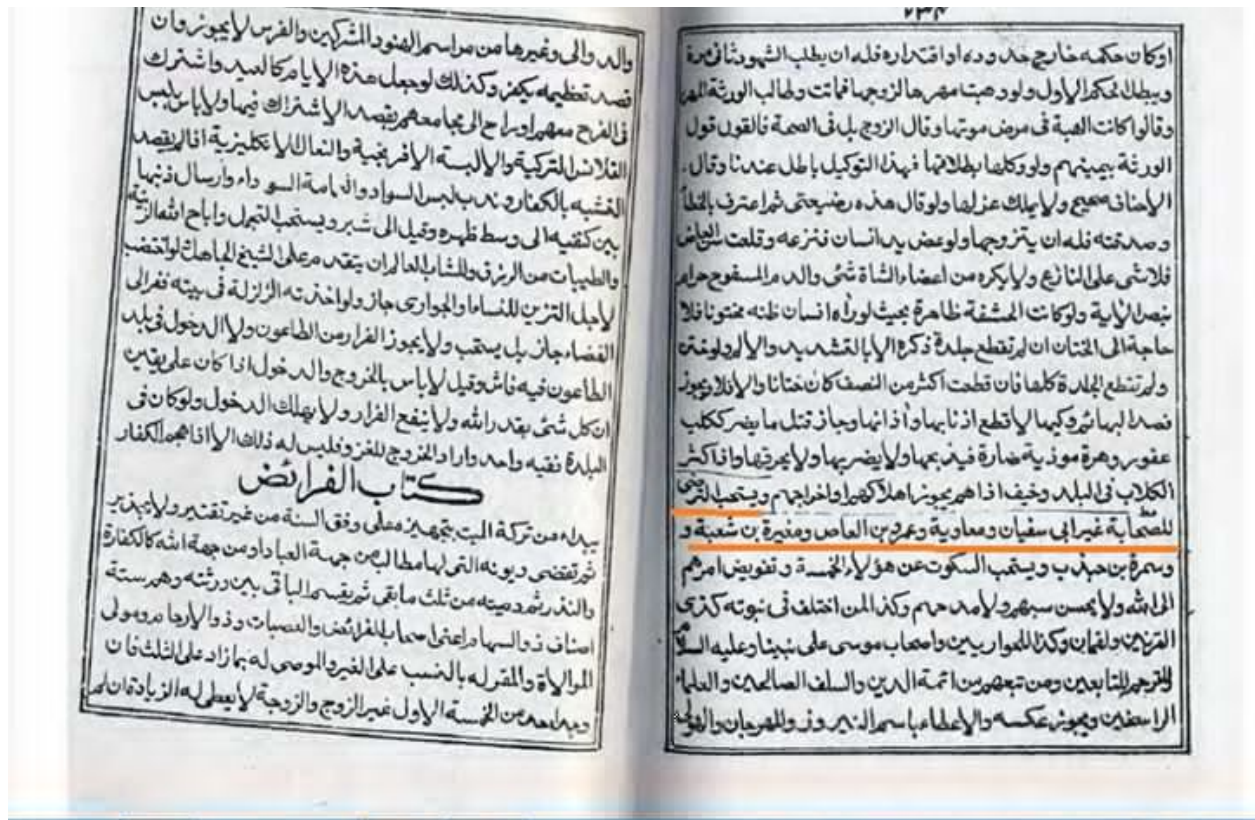 ٢٣٤
اوكان حكمه خارج حدوده او اقتداره فله ان يطلب الشهود ثانى مرة
ويبطل الحكم الاول ولو وهبت مهرها لزوجها فماتت وطالب الورثة المهر
وقالوا كانت الهبة فى مرض موتها وقال الزوج بل فى الصحة فالقول قول
الورثة بيمينهم ولو وكلها بطلاقها فهذا التوكيل باطل عندنا وقال
الاحناف صحيح ولا يملك عزلها ولو قال هذه رضيعتى ثم اعترف بالخطأ
وصدقته فله ان يتزوجها ولو عض يد انسان فنزعه وقلعت سن العاض
فلا شى على النازع ولا يكره من اعضاء الشاة شئ والدم المسفوح حرام
بنص الاية ولو كانت الحشفة ظاهرة بحيث لو رأه انسان ظنه مختونا فلا
حاجة الى الختان ان لم تقطع جلدة ذكره الا بالتشديد والا لم ولو ختن
ولم تقطع الجلدة كلها فان قطعت اكثر من النصف كان ختانا والا فلا ويجوز
فصد البهائم وكيها لا قطع اذنابها وأذانها وجاز قتل ما يضر ككلب
عقور وهرة موذية ضارة فيذبحها ولا يضربها ولا يحرقها واذا كثر
الكلاب فى البلد وخيف اذاهم يجوز اهلاكهم او اخراجهم ويستحب الترضى
للصحابة غير ابى سفيان ومعاوية وعمرو بن العاص ومغيرة بن شعبة و
وسمرة بن جندب ويستحب السكوت عن هؤلاء الخمسة وتفويض امرهم
الى الله ولا يحسن سبهم ولا مدحهم وكذا لمن اختلف فى نبوته كذى
القرنين ولقمان وكذا للحواريين واصحاب موسى على نبينا وعليه السلام
والترحم للتابعين ومن تبعهم من ائمة الدين والسلف الصالحين والعلماء
الراسخين ويجوز عكسه والاعطاء باسم النيروز والمهرجان والهولى
والدوالى وغيرها من مراسم الهنود المشركين والفرس لا يجوز وان
قصد تعظيمه يكفر وكذلك لو جعل هذه الايام كالعيد واشترك
فى الفرح معهم او راح الى مجامعهم بقصد الاشتراك فيها ولا باس بلبس
القلانس التركية والالبسة الافرنجية والنعال الانكليزية اذا لم يقصد
التشبه بالكفار وندب لبس السواد والعمامة السوداء وارسال ذنبها
بين كتفيه الى وسط ظهره وقيل الى شبر ويستحب التجمل واباح الله الزينة
والطيبات من الرزق وللشاب العالم ان يتقدم على الشيخ الجاهل ولو اختضب
لاجل التزين للنساء والجوارى جاز ولو اخذته الزلزلة فى بيته ففر الى
الفضاء جاز بل يستحب ولا يجوز الفرار من الطاعون ولا الدخول فى بلد
الطاعون فيه فاش وقيل لا باس بالخروج والدخول اذا كان على يقين
ان كل شئ بقدر الله ولا ينفع الفرار ولا يهلك الدخول ولو كان فى
البلدة فقيه واحد واراد الخروج للغزو فليس له ذلك الا اذا هجم الكفار
كتاب الفرائض
يبدأ من تركة الميت بتجهيزه على وفق السنة من غير تقتير ولا تبذير
ثم تقضى ديونه التى لها مطالب من جهة العباد او من جهة الله كالكفارة
والنذر ثم وصيته من ثلث ما بقى ثم يقسم الباقى بين ورثته وهم ستة
اصناف ذو السهام اعنى اصحاب الفرائض والعصبات وذو الارحام ومولى
الموالاة والمقر له بالنسب على الغير والموصى له بما زاد على الثلث فان
وجد احد من الخمسة الاول غير الزوج والزوجة لا يعطى له الزيادة ان لم